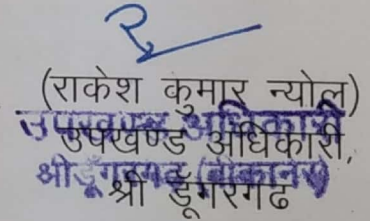 (राकेश कुमार न्योल)
उपखण्ड अधिकारी
उपखण्ड अधिकारी,
श्रीडूँगरगढ (बीकानेर)
श्री डूँगरगढ